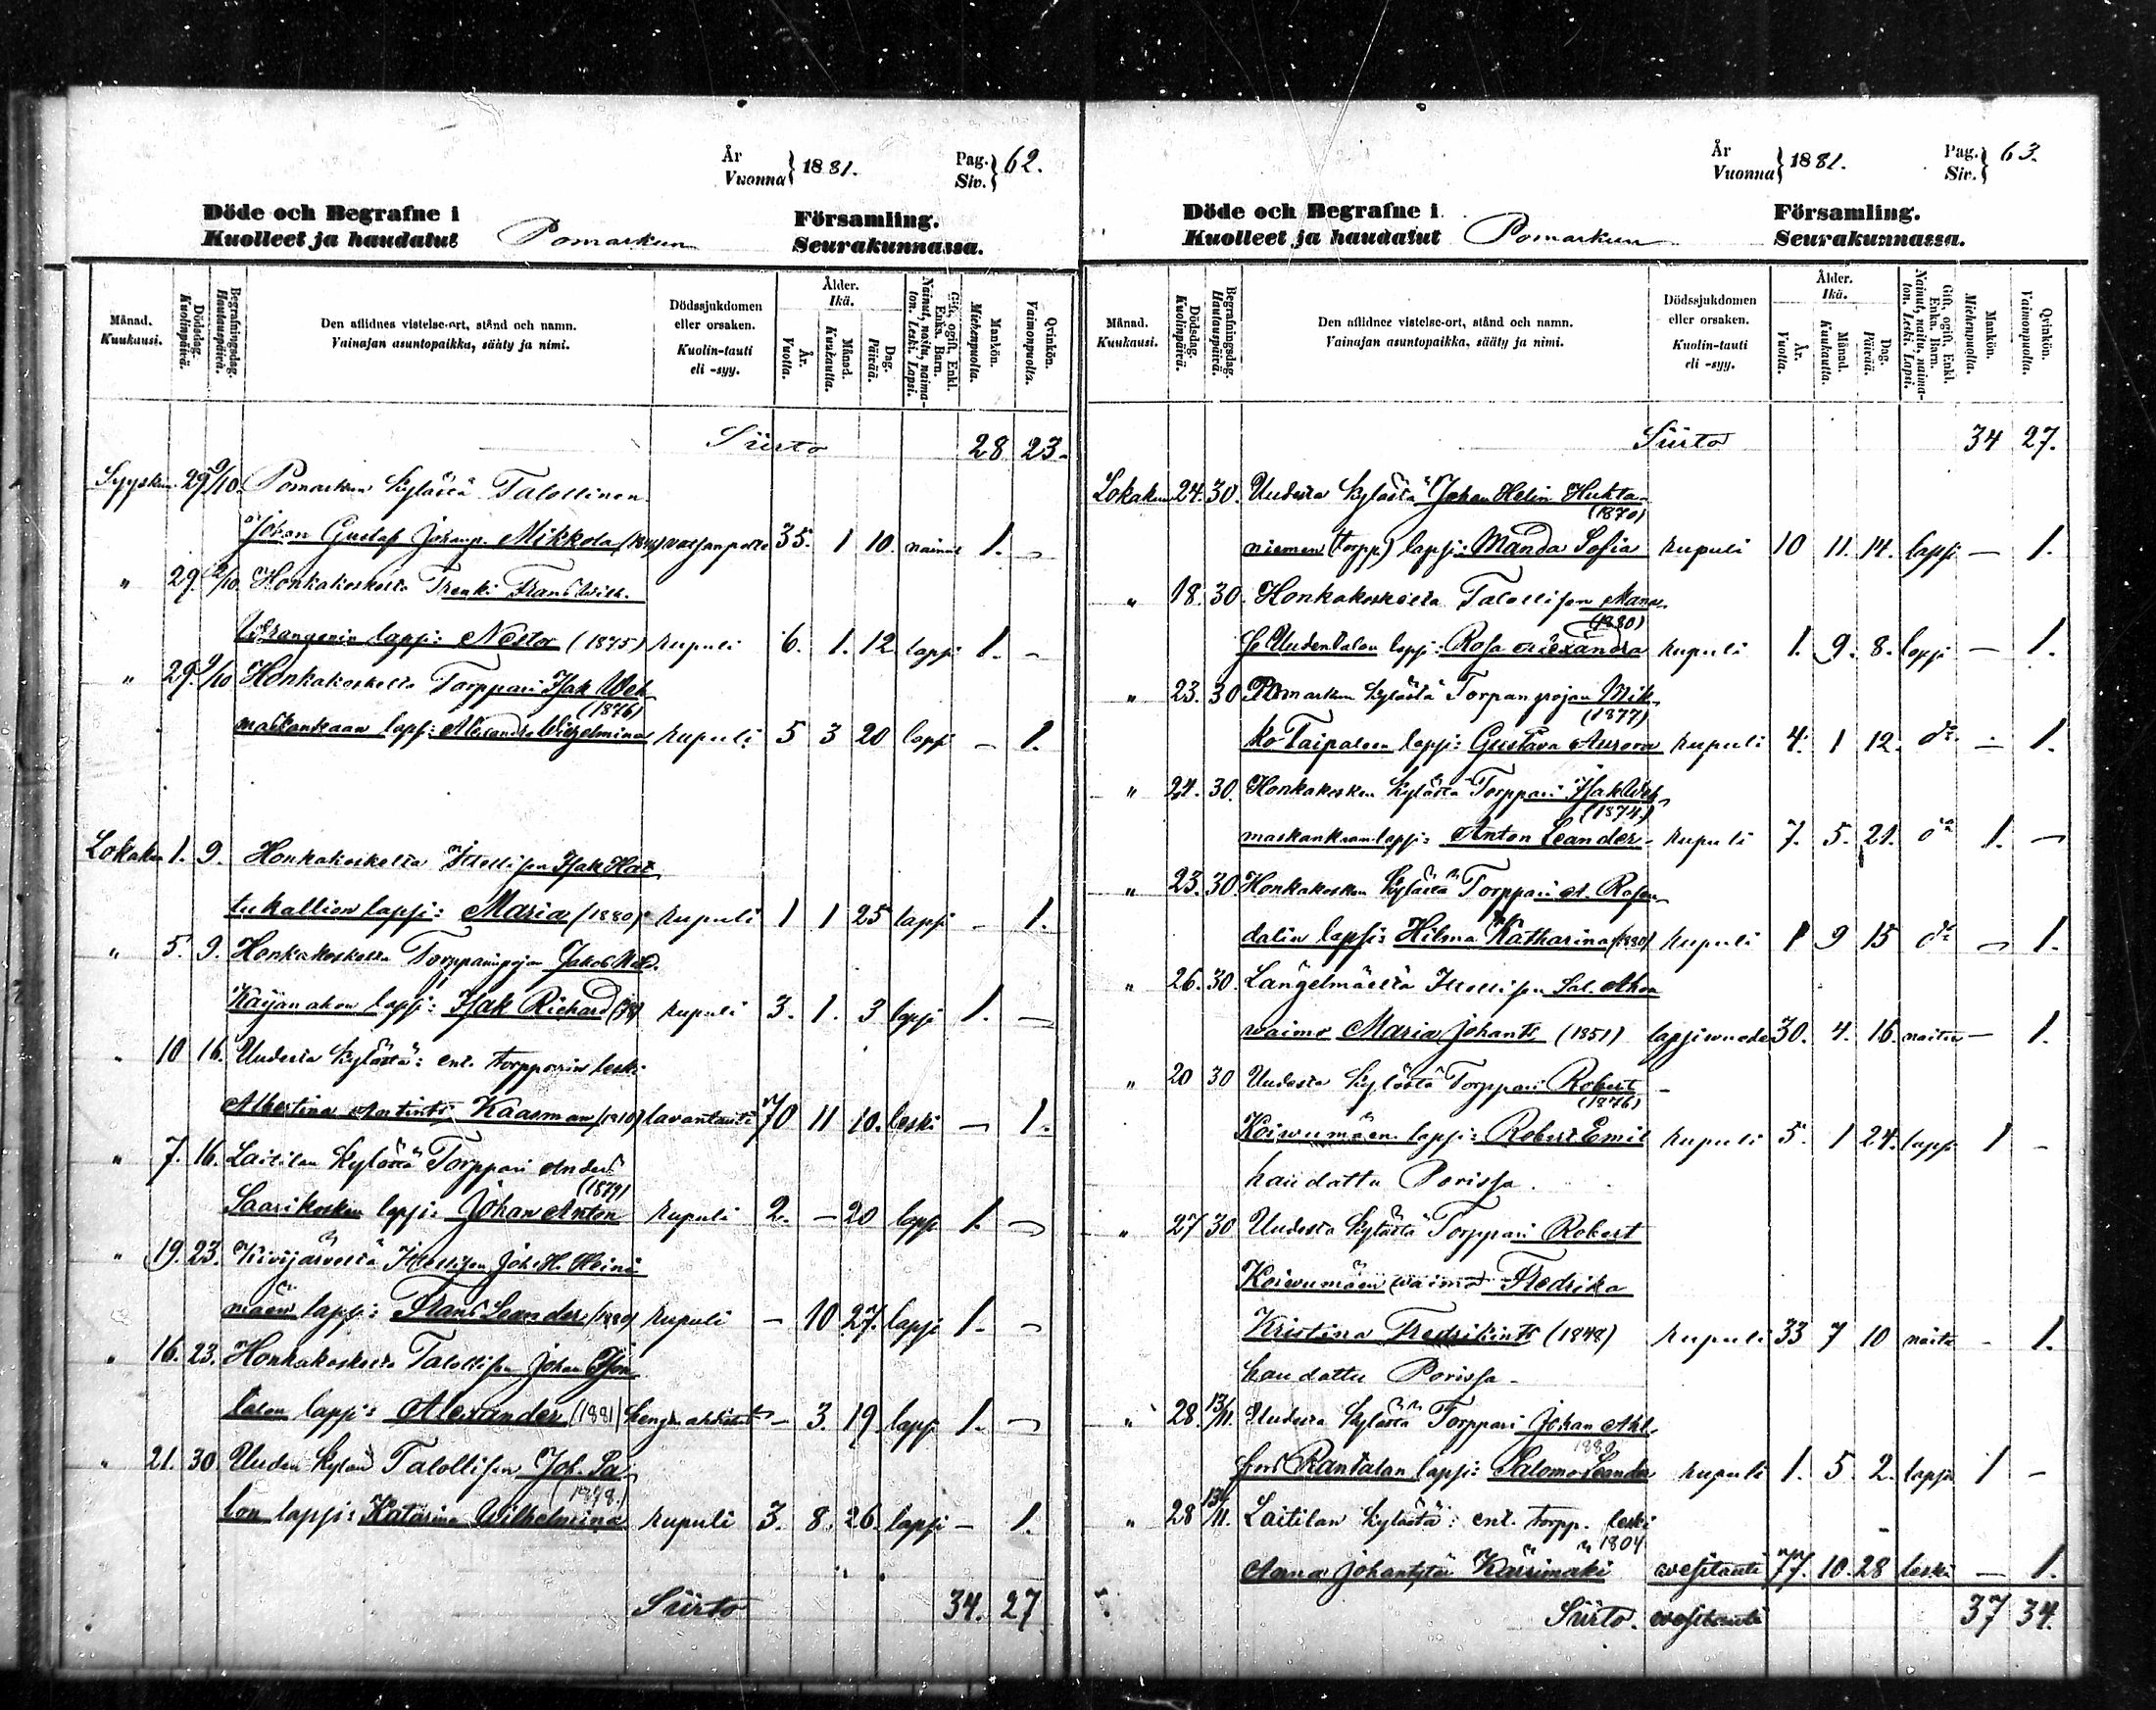 År
Vuonna } 1881. Pag. Siv. } 62.
Döde och Begrafne i Pomarkun Församling.
Kuolleet ja haudatut Seurakunnassa.
Månad. Kuukausi.
Dödsdag. Kuolinpäivä.
Begrafningsdag. Hautauspäivä.
Den aflidnes vistelse-ort, stånd och namn.
Vainajan asuntopaikka, sääty ja nimi.
Dödssjukdomen eller orsaken.
Kuolin-tauti eli -syy.
Ålder. Ikä.
År. Vuotta.
Månad. Kuukautta.
Dag. Päivää.
Gift, ogift, Enkl. Enka, Barn.
Nainut, naitu, naimaton. Leski. Lapsi.
Mankön. Miehenpuolta.
Qvinkön. Vaimonpuolta.
Siirto 28 23.
Syyskuu 29 9/10. Pomarkun kylästä Talollinen
Johan Gustaf Johanp. Mikkola 35. 1 10. nainut 1. —
" 29. 9/10 Honkakoskelta Trenki Frans Wilh.
lapsi: Nestor (1875) rupuli 6. 1. 12 lapsi 1. —
" 29. 9/10 Honkakoskelta Torppari Isak Weh
(1876)
maskankaan lapsi: Alexandra Wilhelmina rupuli 5 3 20 lapsi — 1.
Lokakuu 1. 9. Honkakoskelta Itsellisen Isak Hat
tukallion lapsi: Maria (1880) rupuli 1 1 25 lapsi — 1.
" 5. 9. Honkakoskelta Torpparinpojan Jakob
lapsi: Isak Richard (78) rupuli 3. 1. 3 lapsi 1. —
" 10 16. Uudesta kylästä: ent. torpparin leski
Albertina Kaasman (1810) lavantauti 70 11 10. leski — 1.
" 7. 16. Laitilan kylästä Torppari Anders
(1879)
Saarikosken lapsi: Johan Anton rupuli 2. — 20 lapsi 1. —
" 19. 23. Kivijärveltä Itsellisen Joh. H. Heini
mäen lapsi: Frans Leander (1880) rupuli — 10 27. lapsi 1. —
" 16. 23. Honkakoskelta Talollisen Johan
talon lapsi: Alexander (1881) — 3. 19. lapsi 1. —
" 21. 30 Uuden kylän Talollisen Joh. Sa
(1878.)
lon lapsi: Katarina Wilhelmina rupuli 3. 8. 26. lapsi — 1.
Siirto 34. 27
År
Vuonna } 1881. Pag. Siv. } 63.
Döde och Begrafne i Pomarkun Församling.
Kuolleet ja haudatut Seurakunnassa.
Månad. Kuukausi.
Dödsdag. Kuolinpäivä.
Begrafningsdag. Hautauspäivä.
Den aflidnes vistelse-ort, stånd och namn.
Vainajan asuntopaikka, sääty ja nimi.
Dödssjukdomen eller orsaken.
Kuolin-tauti eli -syy.
Ålder. Ikä.
År. Vuotta.
Månad. Kuukautta.
Dag. Päivää.
Gift, ogift, Enkl. Enka, Barn.
Nainut, naitu, naimaton. Leski. Lapsi.
Mankön. Miehenpuolta.
Qvinkön. Vaimonpuolta.
Siirto 34 27.
Lokakuu 24. 30. Uudesta kylästä Johan Helin Huhta-
(1870)
niemen (torpp.) lapsi: Manda Sofia rupuli 10 11. 14. lapsi — 1.
" 18. 30. Honkakoskelta Talollisen Manas
(1880)
se Uudentalon lapsi: Rosa Alexandra rupuli 1. 9. 8. lapsi — 1.
" 23. 30 Pomarkun kylästä Torpanpojan Mik
(1877)
ko Taipaleen lapsi: Gustava Aurora rupuli 4. 1 12. do — 1.
" 24. 30. Honkakosken kylästä Torppari Isak Weh
(1874)
maskankaan lapsi: Anton Leander rupuli 7. 5. 21. do 1. —
" 23. 30. Honkakosken kylästä Torppari A. Rosen
dalin lapsi: Hilma Katharina (1880) rupuli 1 9 15 do — 1.
" 26. 30. Längelmäeltä Itsellisen Sal. Ahon
waimo Maria Johant. (1851) lapsiwuode 30. 4. 16. naitu — 1.
" 20 30 Uudesta kylästä Torppari Robert
(1876)
Koiwumäen lapsi: Robert Emil rupuli 5. 1 24. lapsi 1 —
haudattu Porissa.
" 27 30 Uudesta kylästä Torppari Robert
Koiwumäen waimo Fredrika
Kristina Fredrikint. (1848) rupuli 33 7 10 naitu — 1.
haudattu Porissa.
" 28. 13/11. Uudesta kylästä Torppari Johan Ahl
1880
Rantalan lapsi: Salomo Leander rupuli 1. 5. 2. lapsi 1 —
" 28 13/11. Laitilan kylästä: ent. torpp. leski
1804
Anna Johantytär wesitauti 77. 10. 28 leski — 1.
Siirto. wesitauti 37 34.